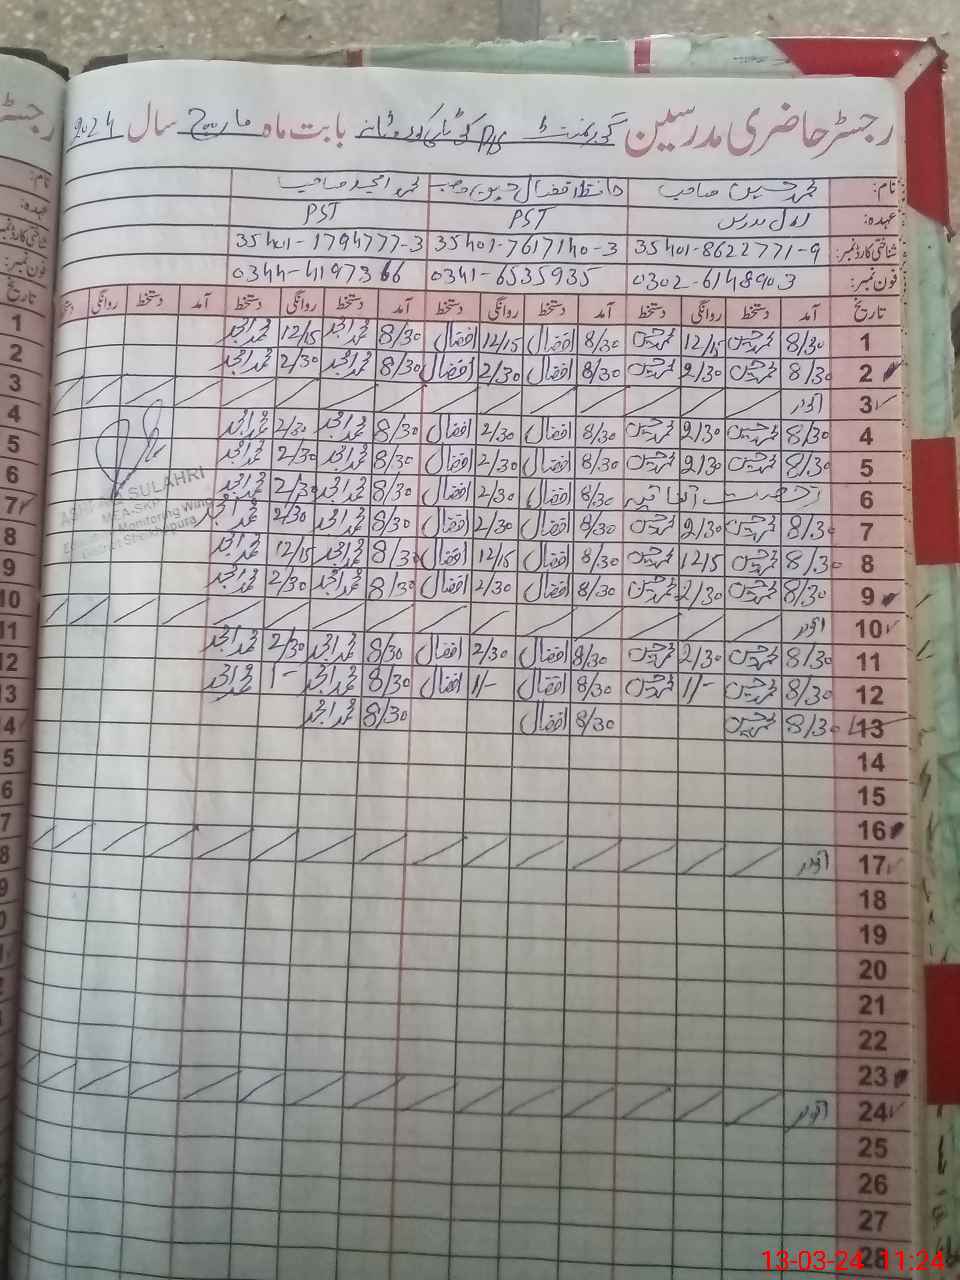 رجسٹر حاضری مدرسین گورنمنٹ P/S بابت ماہ مارچ 2024 سال
نام: محمد حسین صاحب حافظ افضال حسین صاحب محمد امجد صاحب
عہدہ: اول مدرس PST PST
شناختی کارڈ نمبر: 35401-8622771-9 35401-7617140-3 35401-1794777-3
فون نمبر: 0302-6148903 0341-6535935 0344-4197366
تاریخ آمد دستخط روانگی دستخط آمد دستخط روانگی دستخط آمد دستخط روانگی دستخط آمد دستخط روانگی دستخط
1 8/30 محمد حسین 12/15 محمد حسین 8/30 افضال 12/15 افضال 8/30 محمد امجد 12/15 محمد امجد
2 8/30 محمد حسین 2/30 محمد حسین 8/30 افضال 2/30 افضال 8/30 محمد امجد 2/30 محمد امجد
3 اتوار
4 8/30 محمد حسین 2/30 محمد حسین 8/30 افضال 2/30 افضال 8/30 محمد امجد 2/30 محمد امجد
5 8/30 محمد حسین 2/30 محمد حسین 8/30 افضال 2/30 افضال 8/30 محمد امجد 2/30 محمد امجد
6 رخصت اتفاقیہ 8/30 افضال 2/30 افضال 8/30 محمد امجد 2/30 محمد امجد
7 8/30 محمد حسین 2/30 محمد حسین 8/30 افضال 2/30 افضال 8/30 محمد امجد 2/30 محمد امجد
8 8/30 محمد حسین 12/15 محمد حسین 8/30 افضال 12/15 افضال 8/30 محمد امجد 12/15 محمد امجد
9 8/30 محمد حسین 2/30 محمد حسین 8/30 افضال 2/30 افضال 8/30 محمد امجد 2/30 محمد امجد
10 اتوار
11 8/30 محمد حسین 2/30 محمد حسین 8/30 افضال 2/30 افضال 8/30 محمد امجد 2/30 محمد امجد
12 8/30 محمد حسین 1/- محمد حسین 8/30 افضال 1/- افضال 8/30 محمد امجد 1- محمد امجد
13 8/30 محمد حسین 8/30 افضال 8/30 محمد امجد
14
15
16
17 اتوار
18
19
20
21
22
23
24 اتوار
25
26
27
28
SULAHRI
MEA-SKP
Monitoring Wing
District Sheikhupura
13-03-24 11:24